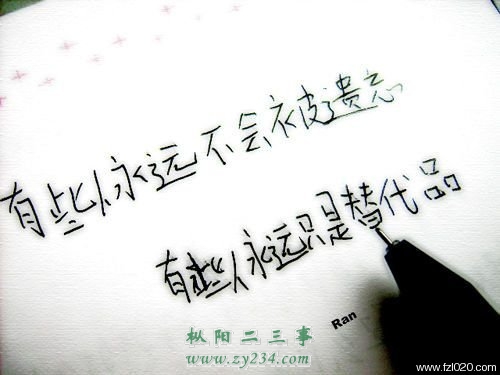 有些人永远不会被遗忘
有些人永远只是替代品
Ran
枞阳二三事
www.zy234.com
www.fzl020.com